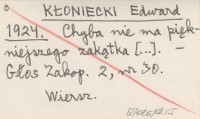 o KŁONIECKI Edward
1924. Chyba nie ma pięk-
niejszego zakątka [...]. -
Głos Zakop. 2, nr 30.
Wiersz.